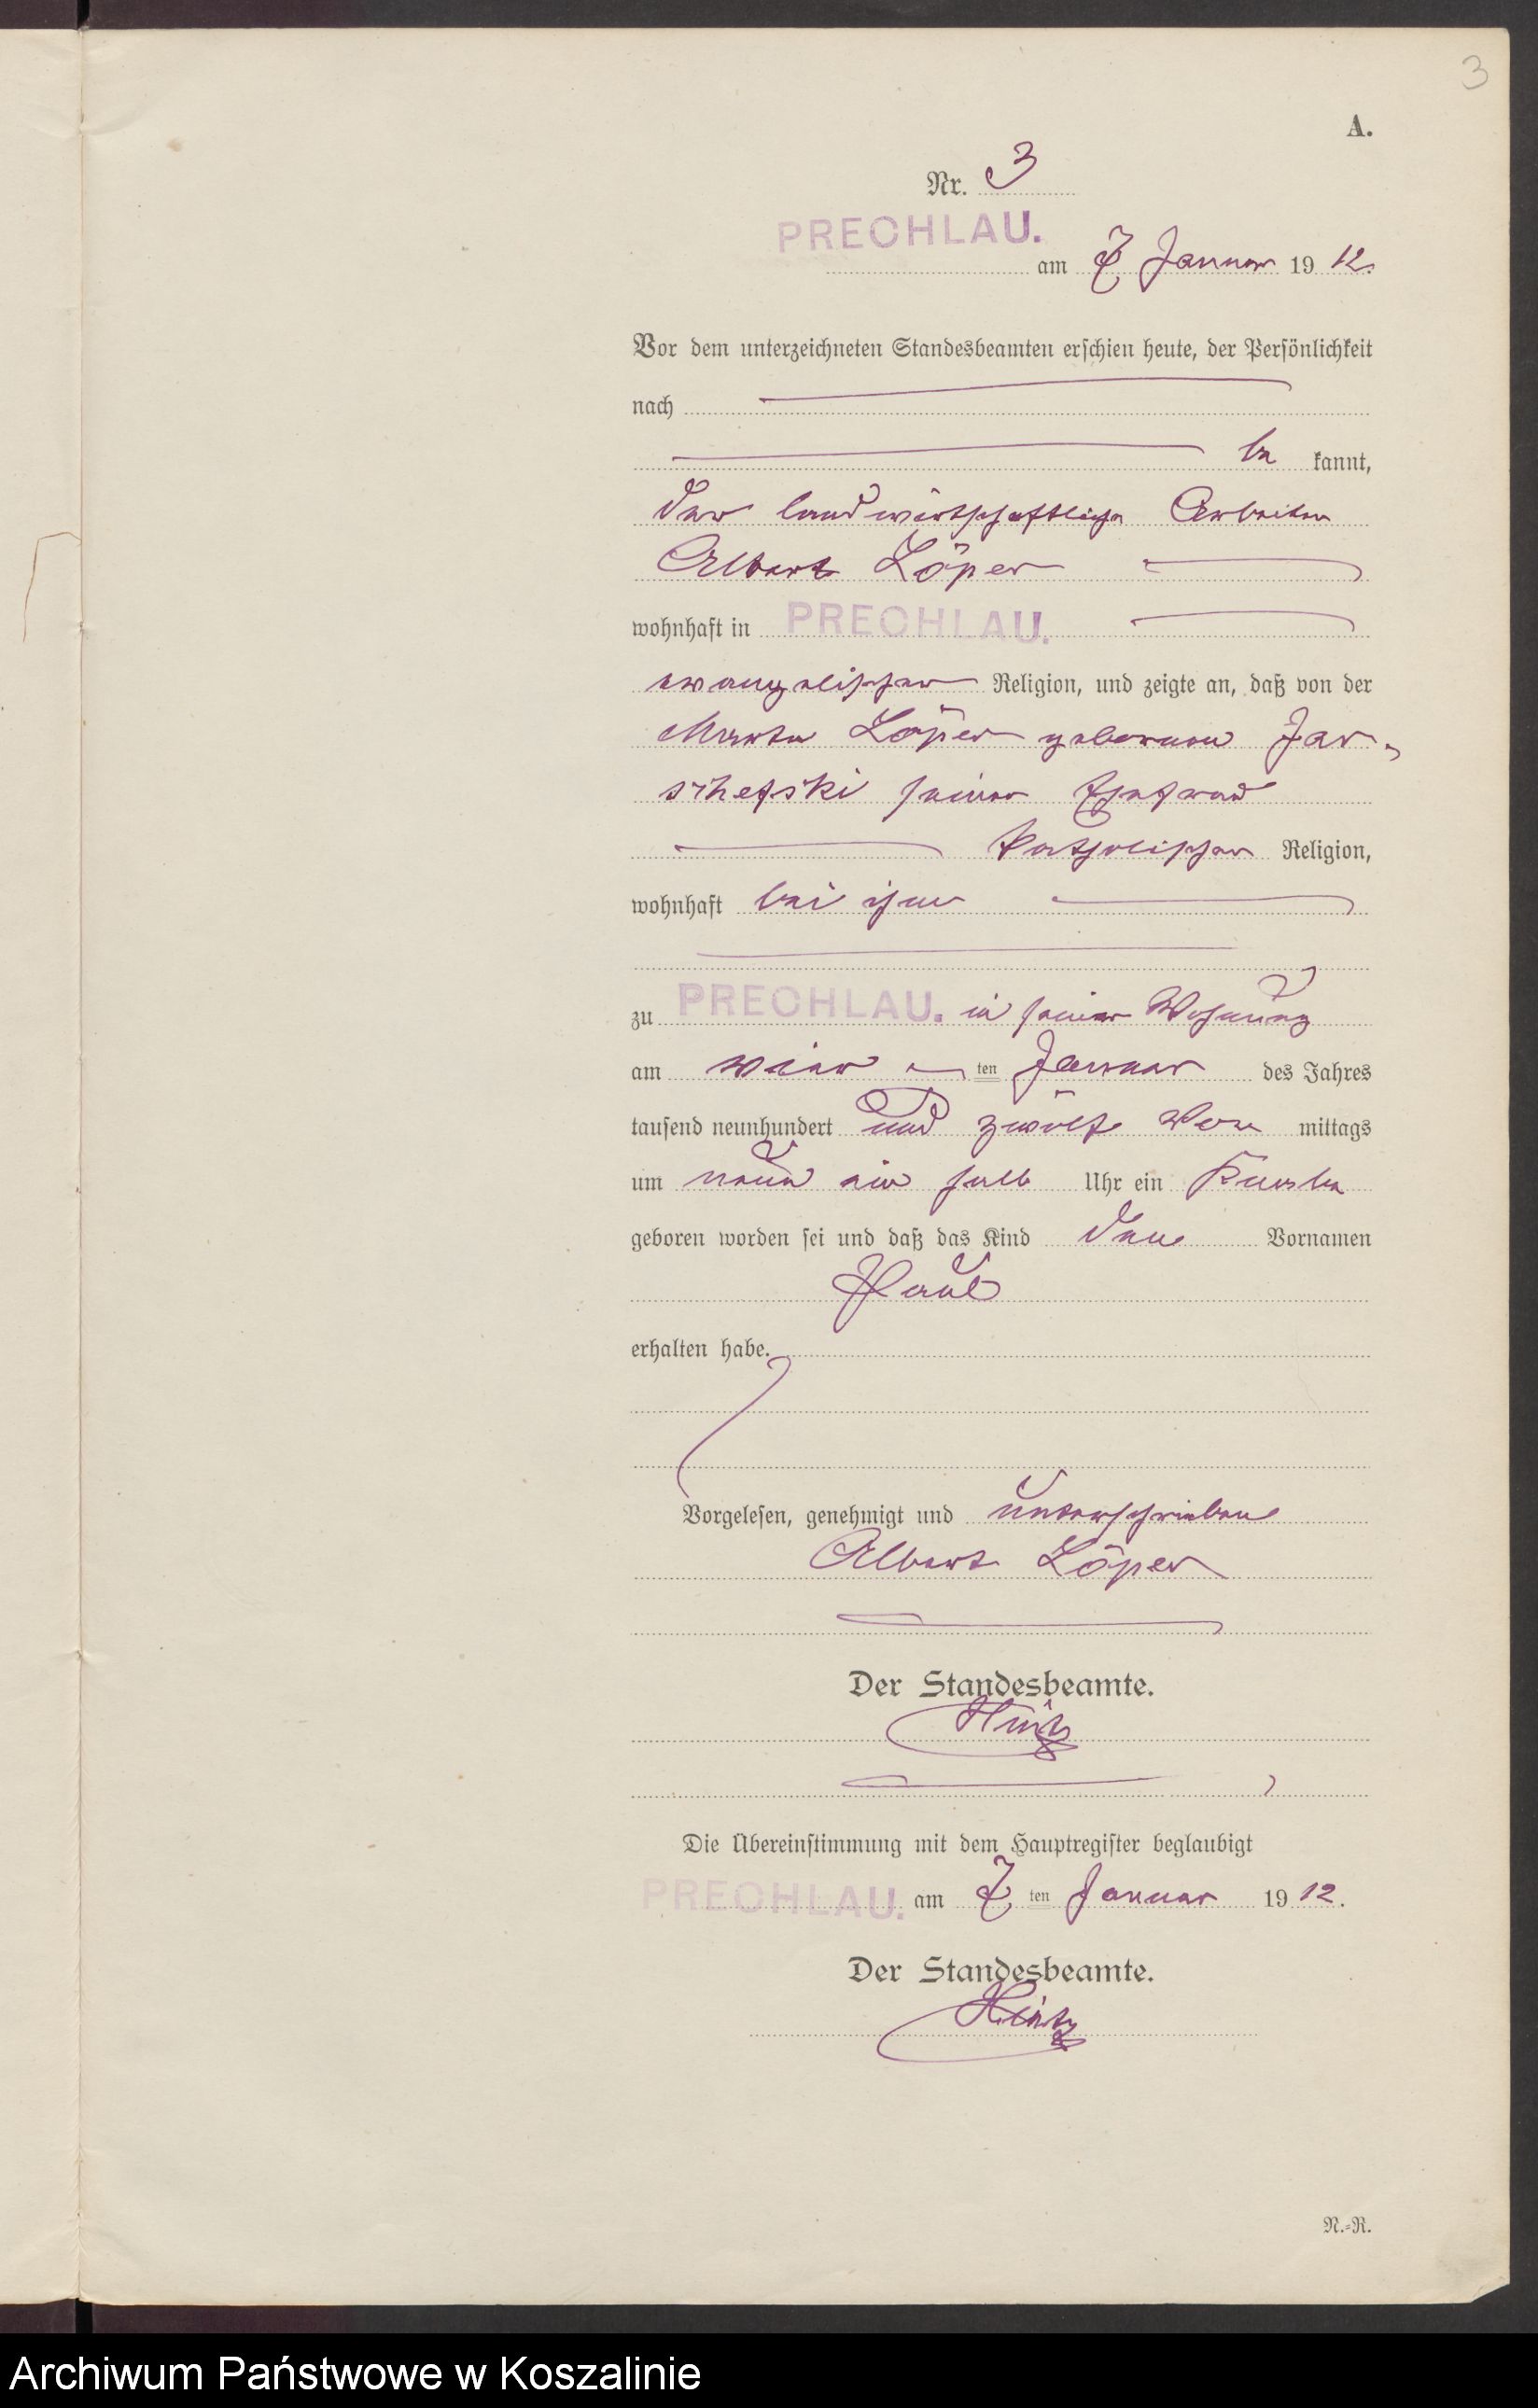 3
A.
Nr. 3
PRECHLAU.
am 7 Januar 1912.
Vor dem unterzeichneten Standesbeamten erschien heute, der Persönlichkeit
nach
be kannt,
der landwirtschaftliche Arbeiter
Albert Löper
wohnhaft in PRECHLAU.
evangelischer Religion, und zeigte an, daß von der
Marta Löper geborenen Jar-
schefski seiner Ehefrau
katholischer Religion,
wohnhaft bei ihm
zu PRECHLAU. in seiner Wohnung
am vier ten Januar des Jahres
tausend neunhundert und zwölf Vor mittags
um neun ein halb Uhr ein Knabe
geboren worden sei und daß das Kind den Vornamen
Paul
erhalten habe.
Vorgelesen, genehmigt und unterschrieben
Albert Löper
Der Standesbeamte.
Hintz
Die Übereinstimmung mit dem Hauptregister beglaubigt
PRECHLAU. am 7 ten Januar 1912.
Der Standesbeamte.
Hintz
N.-R.
Archiwum Państwowe w Koszalinie